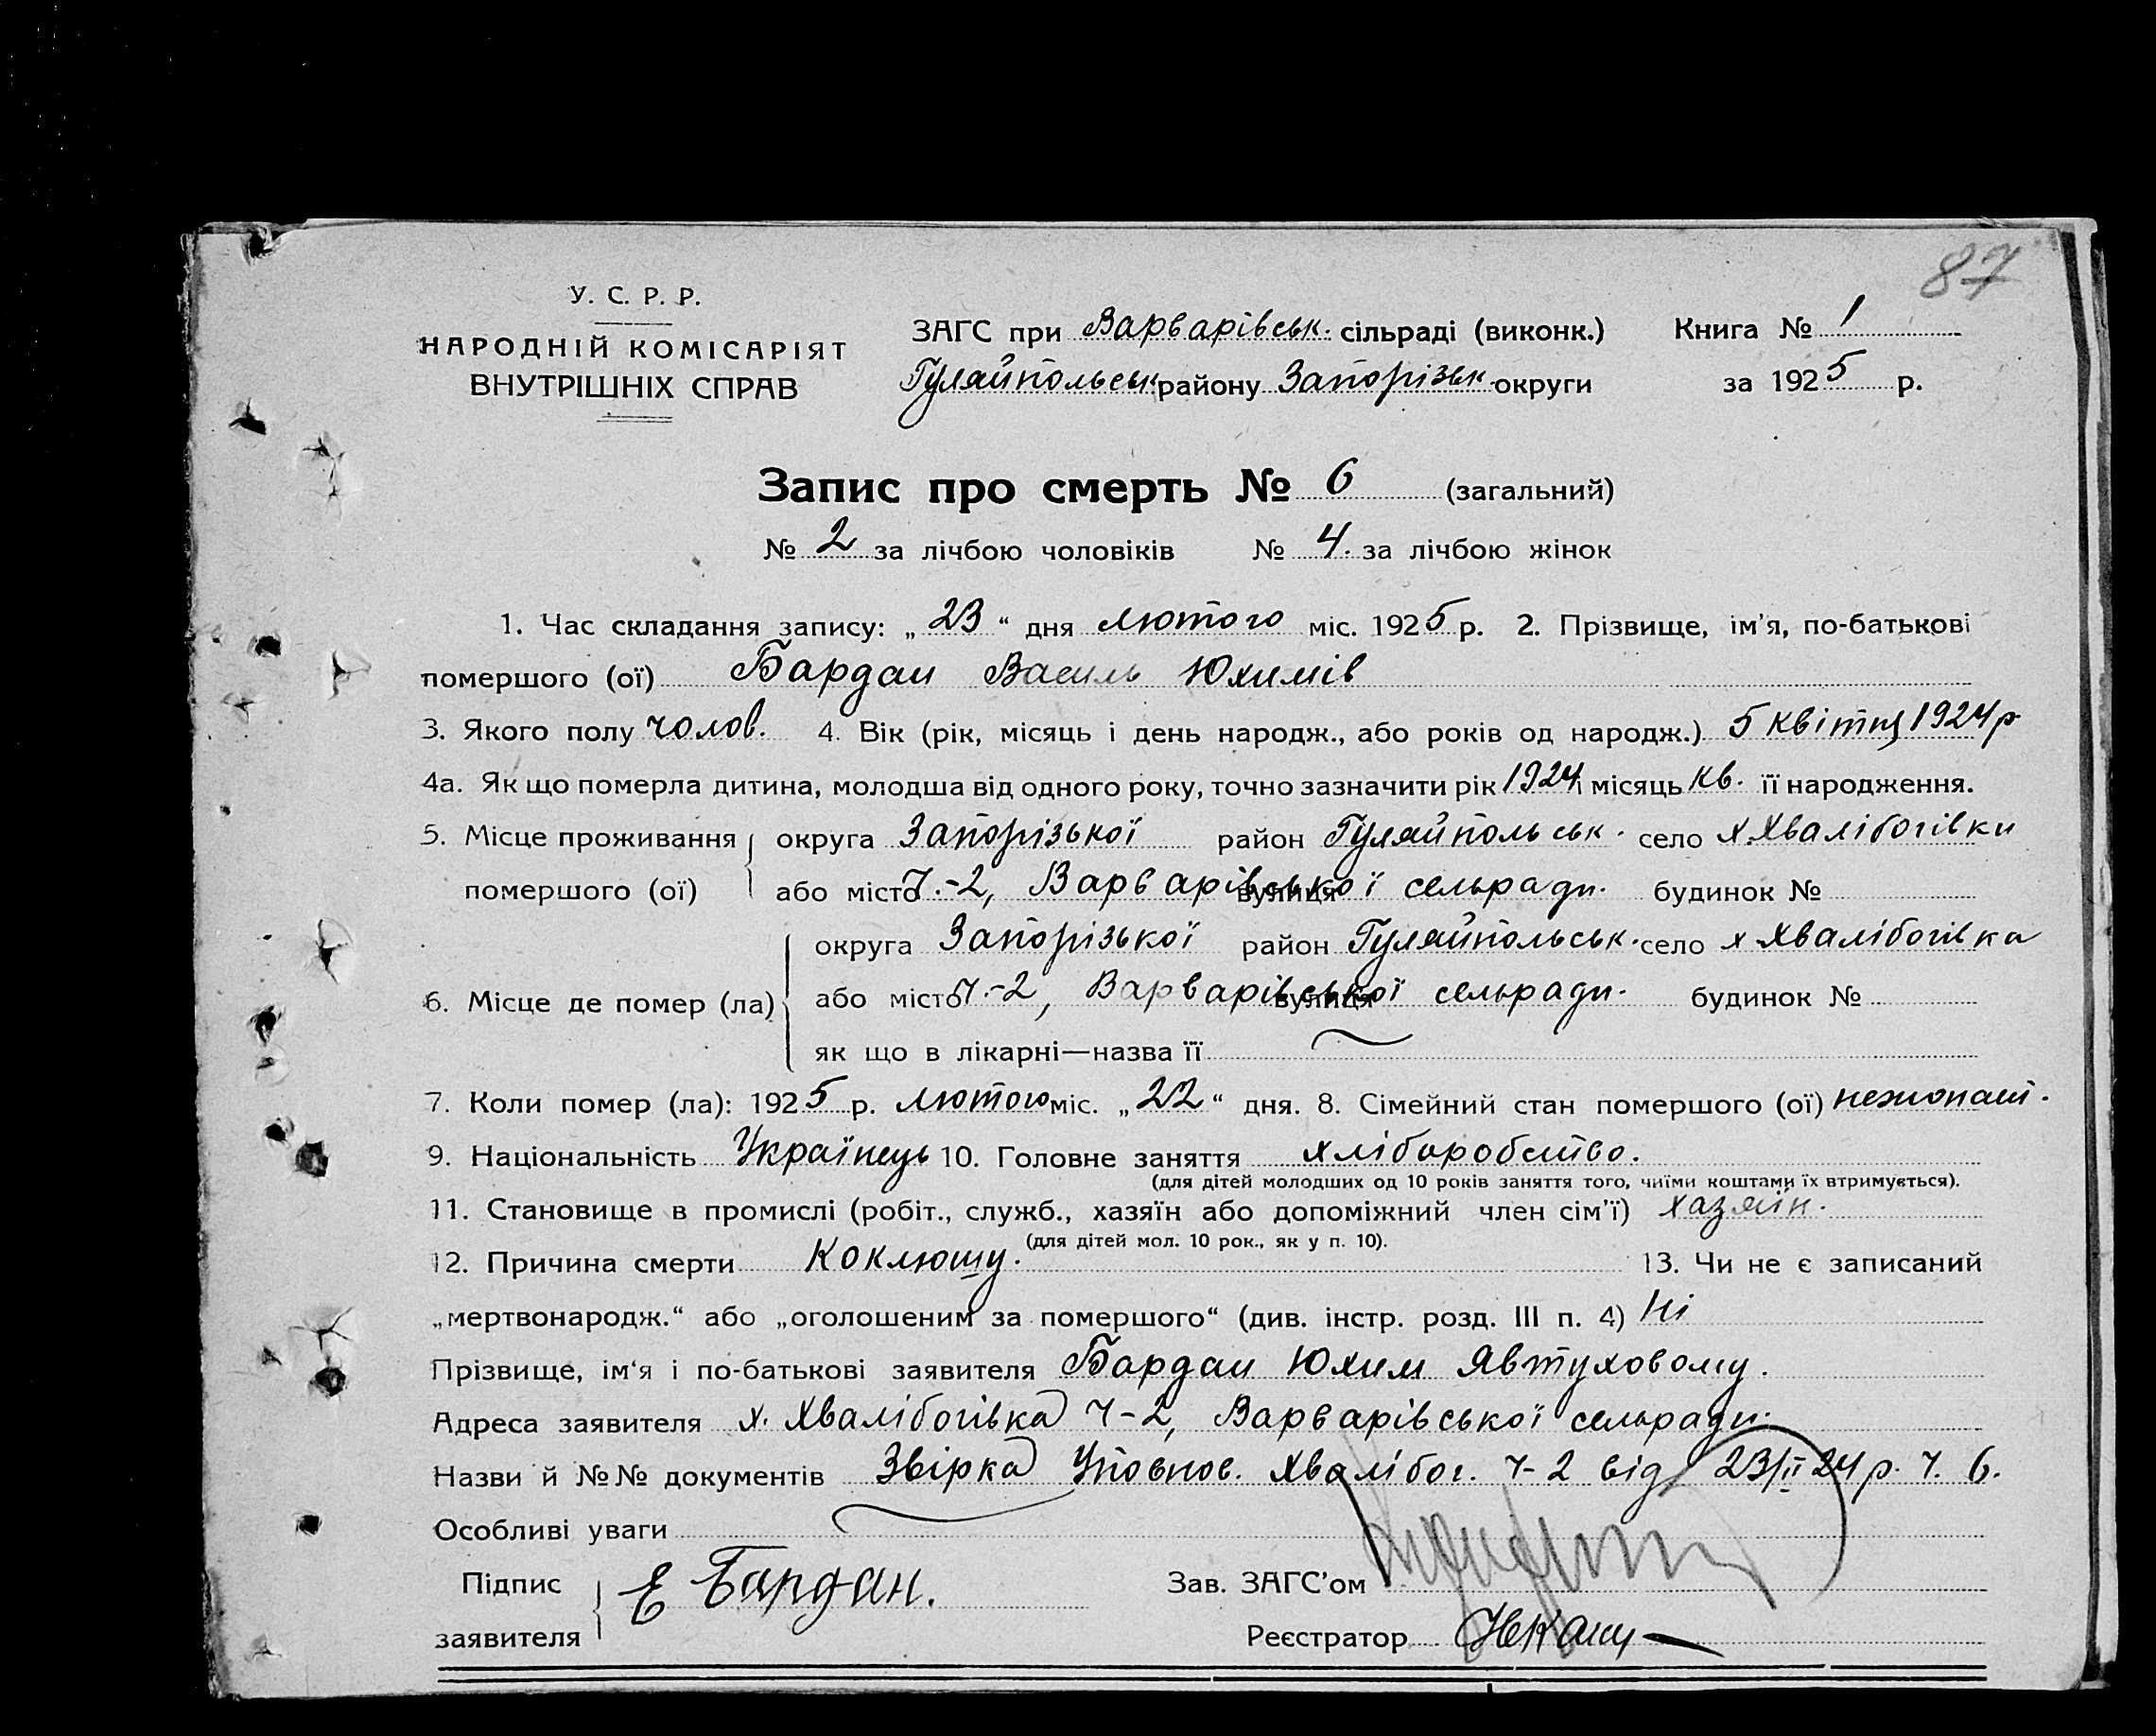 87
У. С. Р. Р.
НАРОДНІЙ КОМІСАРІЯТ
ВНУТРІШНІХ СПРАВ
ЗАГС при Варварівськ. сільраді (виконк.) Книга № 1
Гуляйпольськ району Запорізьк. округи за 1925 р.
Запис про смерть № 6 (загальний)
№ 2 за лічбою чоловіків № 4. за лічбою жінок
1. Час складання запису: „23“ дня лютого міс. 1925 р. 2. Прізвище, ім'я, по-батькові
помершого (ої) Бардан Василь Юхимів
3. Якого полу чолов. 4. Вік (рік, місяць і день народж., або років од народж.) 5 квітня 1924 р
4а. Як що померла дитина, молодша від одного року, точно зазначити рік 1924 і місяць кв. її народження.
5. Місце проживання округа Запорізької район Гуляйпольськ. село х. Хвалібогівки
помершого (ої) або місто ч.-2, Варварівської вулиця сельради. будинок №
округа Запорізької район Гуляйпольськ. село х Хвалібогівка
6. Місце де помер (ла) або місто ч.-2, Варварівської вулиця сельради. будинок №
як що в лікарні—назва її
7. Коли помер (ла): 1925 р. лютого міс. „22“ дня. 8. Сімейний стан помершого (ої)
9. Національність Українець 10. Головне заняття хліборобство.
(для дітей молодших од 10 років заняття того, чиїми коштами їх втримується).
11. Становище в промислі (робіт., служб., хазяїн або допоміжний член сім'ї) хазяїн.
(для дітей мол. 10 рок., як у п. 10).
12. Причина смерти Коклюшу. 13. Чи не є записаний
„мертвонародж.“ або „оголошеним за помершого“ (див. інстр. розд. III п. 4) Ні
Прізвище, ім'я і по-батькові заявителя Бардан Юхим Явтуховому.
Адреса заявителя х. Хвалібогівка ч-2, Варварівської сельради.
Назви й №№ документів Звірка Уповнов. Хвалібог. ч-2 від 23/II 24 р. ч. 6.
Особливі уваги
Підпис Е Бардан. Зав. ЗАГС'ом
заявителя Реєстратор